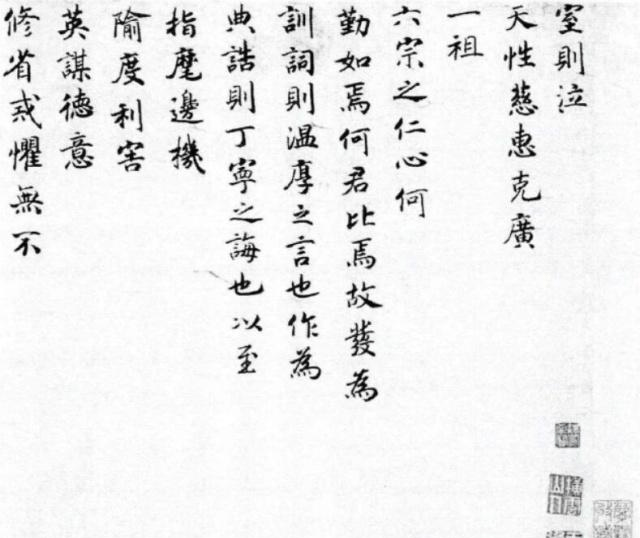 室則泣
天性慈惠克廣
一祖
六宗之仁心何
勤如焉何君比焉故發為
訓詞則溫厚之言也作為
典誥則丁寧之誨也以至
指麾邊機
隃度利害
英謀德意
修省或懼無不